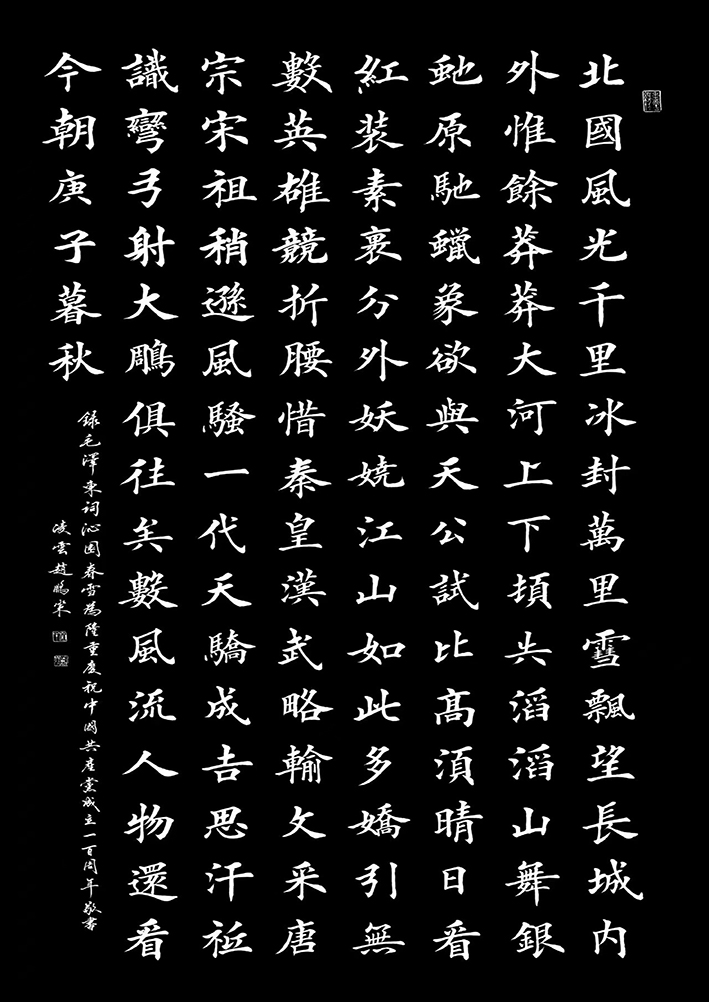 北國風光千里冰封萬里雪飄望長城内
外惟餘莽莽大河上下頓失滔滔山舞銀
虵原馳蠟象欲與天公試比高須晴日看
紅裝素裹分外妖嬈江山如此多嬌引無
數英雄競折腰惜秦皇漢武略輸文采唐
宗宋祖稍遜風騷一代天驕成吉思汗祗
識彎弓射大鵰俱往矣數風流人物還看
今朝庚子暮秋
録毛澤東詞沁園春雪為隆重慶祝中國共產黨成立一百周年敬書
凌雲趙鵬